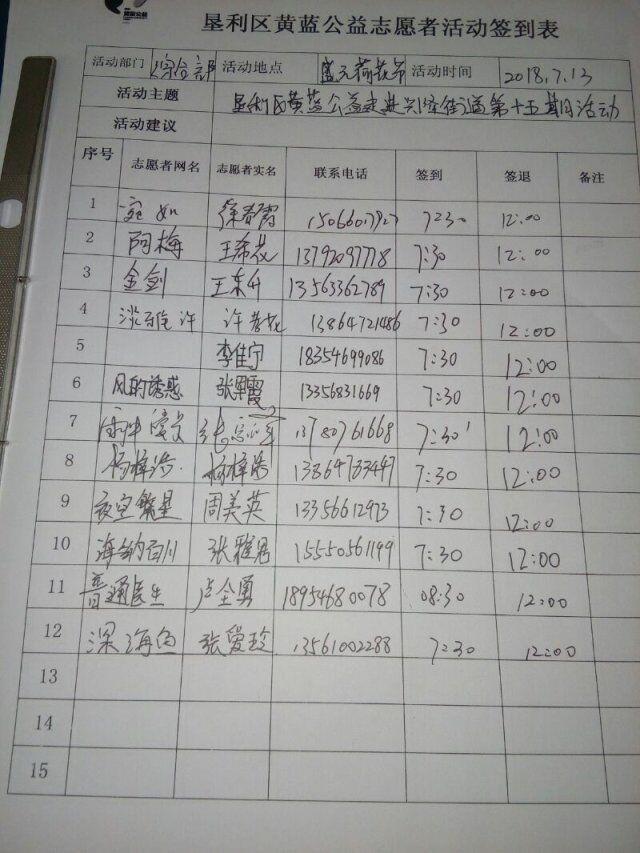 垦利区黄蓝公益志愿者活动签到表
活动部门 综合部 活动地点 盛元荷花节 活动时间 2018.7.13
活动主题 垦利区黄蓝公益走进兴隆街道第十五期日活动
活动建议
序号 志愿者网名 志愿者实名 联系电话 签到 签退 备注
1 宛如 徐春霞 15066077927 7:30 12:00
2 阿梅 王希花 13792097778 7:30 12:00
3 金剑 王东升 13563362789 7:30 12:00
4 淡雅许 许春花 13864721486 7:30 12:00
5 李佳宁 18354699086 7:30 12:00
6 风的诱惑 张翠霞 13356831669 7:30 12:00
7 张 13780761668 7:30 12:00
8 杨梓浩 杨梓浩 13864733447 7:30 12:00
9 夜空繁星 周美英 13356612973 7:30 12:00
10 海纳百川 张雅君 15550561199 7:30 12:00
11 普通医生 卢全勇 18954680078 08:30 12:00
12 深海鱼 张爱玲 13561002288 7:30 12:00
13
14
15